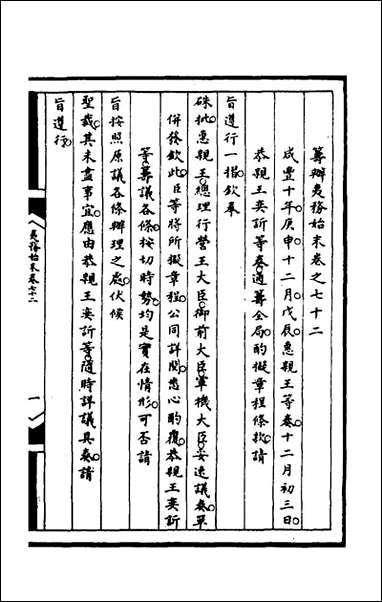 籌辦夷務始末卷之七十二
咸豐十年庚申十二月戊辰惠親王等奏十二月初三日
恭親王奕訢等奏通籌全局酌擬章程條款請
旨遵行一摺欽奉
硃批惠親王總理行營王大臣御前大臣軍機大臣妥速議奏單
併發欽此臣等將所擬章程公同詳閱悉心酌覆恭親王奕訢
等籌議各條按切時勢均是實在情形可否請
旨按照原議各條辦理之處伏候
聖裁其未盡事宜應由恭親王奕訢等隨時詳議具奏請
旨遵行
夷務始末卷七十二
一